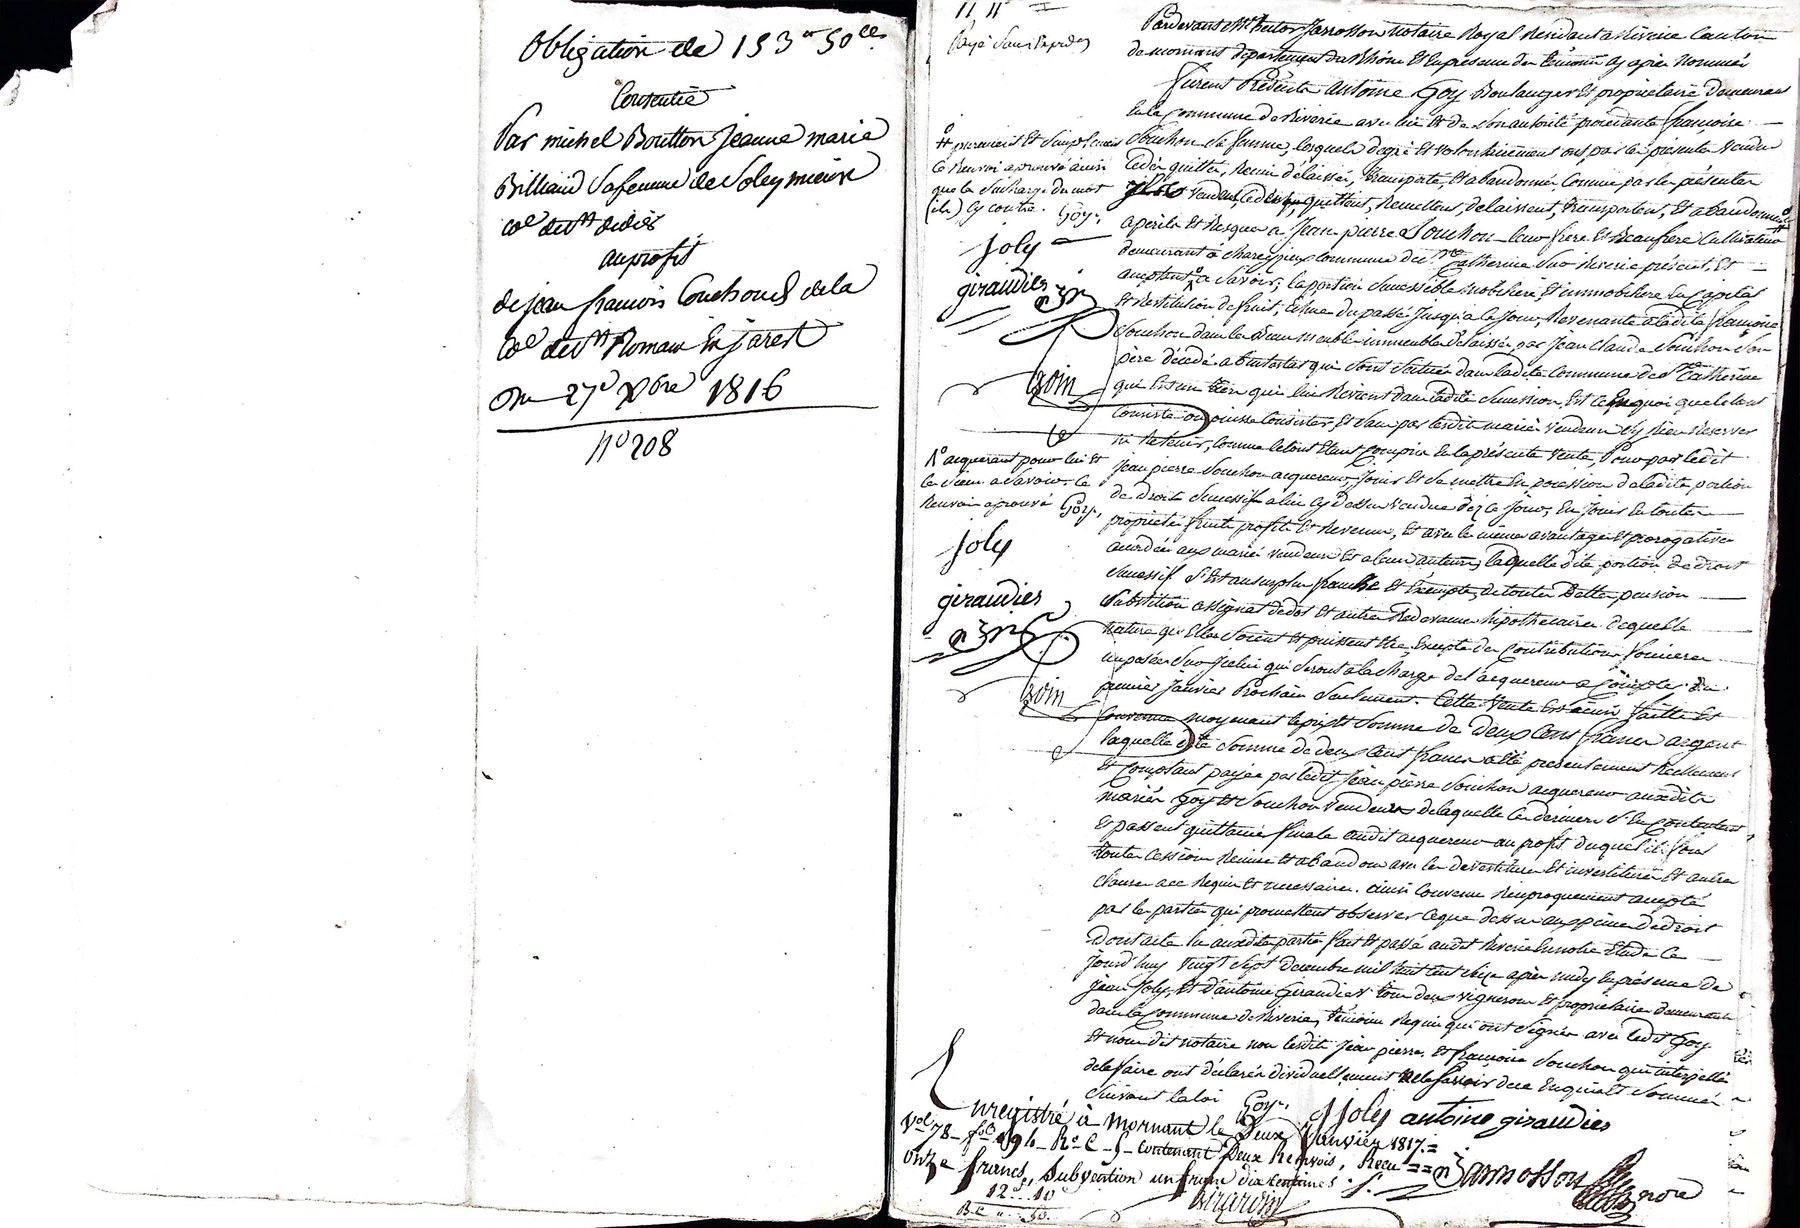 Obligation de 153 fr 50 ces
Consentie
Par michel Boutton jeanne marie
Billiaud Sa femme de Soleymieux
coe de st didier
au profit
de jean francois Couchoud de la
coe de st Romain En jarest
Du 27e Xbre 1816
no 208
Pardevant Me hector Jarrosson notaire Royal Résidant a Riverie Canton
de mornant département du Rhône Et En présence des témoins cy après Nommés
furent Présents antoine Goy Boulanger Et propriétaire demeurant
En la Commune de Riverie avec lui Et de Son autorité procédante françoise
Souchon Sa femme, lesquels de gré Et volontairement ont par les présentes vendu
Cédé, quitté, Remis, délaissé, transporté, Et abandonné Comme par les présentes
vendent, Cedent, quittent, Remettent, délaissent, transportent, Et abandonnent
a périls Et Risques a Jean pierre Souchon leur frere Et Beaufrere Cultivateur
demeurant a Commune de Ste Catherine Sur Riverie présent, Et
acceptant a Savoir, la portion Successible mobiliere, Et immobiliere En Capital
Et Restitution de fruit, Echue du passé jusqu'a Ce jour, Revenante a ladite françoise
Souchon dans les Biens meubles immeubles délaissés par Jean Claude Souchon Son
père décédé abintestat qui Sont Situés dans ladite Commune de Ste Catherine
qui Est un tiers qui lui Revient dans ladite Succession, Est Ce En quoi que le tout
Consiste ou puisse Consister, Et Sans par lesdits mariés vendeurs n'y Rien Reserver
ni Retenir, Comme le tout Etant Compris En la présente vente, Pour par ledit
Jean pierre Souchon acquereur, Jouir Et Se mettre En possession de ladite portion
de droits Successifs a lui Cy dessus vendue dez Ce jour, En Jouir En toutes
propriétés fruits profits Et Revenus, Et avec les mêmes avantages Et prorogatives
accordés aux mariés vendeurs Et a leurs auteurs, laquelle dite portion de droits
Successifs Est au surplus franche Et Exempte, de toutes Dettes pension
Substition assignat de dot Et autres Redevances hipothécaires de quelle
Nature qu'Elles Soient Et puissent Etre, Excepté des Contributions foncieres
imposées Sur Jcelui qui Seront a la charge de l'acquereur a Compter du
premier Janvier Prochain Seulement. Cette vente Est ainsi faitte Et
Convenue moyenant le prix Et Somme de deux Cent francs argent
laquelle dite Somme de deux Cent francs a Eté présentement Réellement
Et Comptant payée par ledit Jean pierre Souchon acquereur auxdits
mariés Goy Et Souchon vendeurs de laquelle Ces derniers S'En Contentent
Et passent quittance finale audit acquereur au profit duquel ils font
toutes Cession Remise Et abandon avec les devestitures Et investitures Et autres
Clauses ace Requises Et necessaires. ainsi Convenu Réciproquement accepté
par les parties qui promettent observer Ce que dessus aux peines de droit
Dont acte lu auxdites parties fait Et passé audit Riverie En notre Etude Ce
jourd'huy vingt Sept decembre mil huit Cent Seize après midy En présence de
Jean Joly, Et d'antoine Giraudier tous deux vignerons Et propriétaires demeurants
dans la Commune de Riverie, témoins Requis qui ont Signés avec ledit Goy
Et nous dit notaire non lesdits Jean pierre Et françoise Souchon qui interpellés
de le faire ont déclarés dividuellement ne le Savoir de ce Enquis Et Sommés
Suivant la loi
Goy. J Joly antoine giraudier
Jarrosson nore
Payé Sans Expedon
# purement Et Simplement
Ce Renvoi aprouvé ainsi
que la Surcharge du mot
(ils) Cy contre. Goy.
joly
giraudier
Girardin
acquerant pour lui Et
les Siens a Savoir. Ce
Renvoi aprouvé Goy.
joly
giraudier
Enregistré à Mornant le Deux Janvier 1817.
Vol 78 - fo 94 - Ro C - 5 - contenant Deux Renvois, Reçu
onze francs, Subvention un franc dix centimes
12 10
50
Girardin